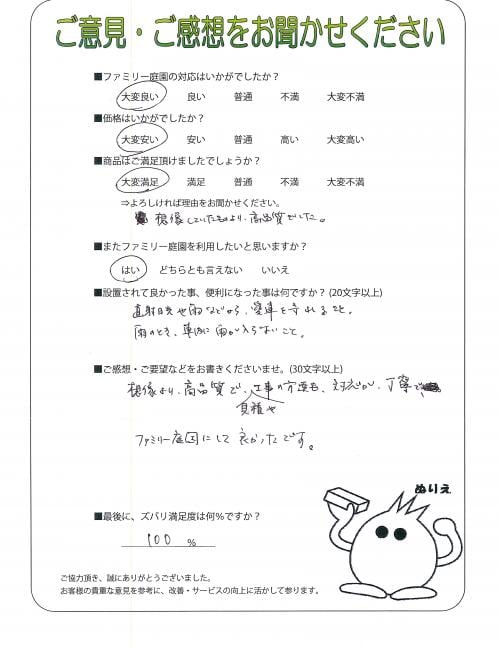 ご意見・ご感想をお聞かせください
■ファミリー庭園の対応はいかがでしたか？
大変良い 良い 普通 不満 大変不満
■価格はいかがでしたか？
大変安い 安い 普通 高い 大変高い
■商品はご満足頂けましたでしょうか？
大変満足 満足 普通 不満 大変不満
⇒よろしければ理由をお聞かせください。
想像していたものより、高品質でした。
■またファミリー庭園を利用したいと思いますか？
はい どちらとも言えない いいえ
■設置されて良かった事、便利になった事は何ですか？(20文字以上)
直射日光や雨などから、愛車を守れること。
雨のとき、車内に雨が入らないこと。
■ご感想・ご要望などをお書きくださいませ。(30文字以上)
想像より、高品質で、工事の方達も、対応が、丁寧で
見積や
ファミリー庭园にして良かったです。
■最後に、ズバリ満足度は何％ですか？
100 %
ぬりえ
ご協力頂き、誠にありがとうございました。
お客様の貴重な意見を参考に、改善・サービスの向上に活かして参ります。